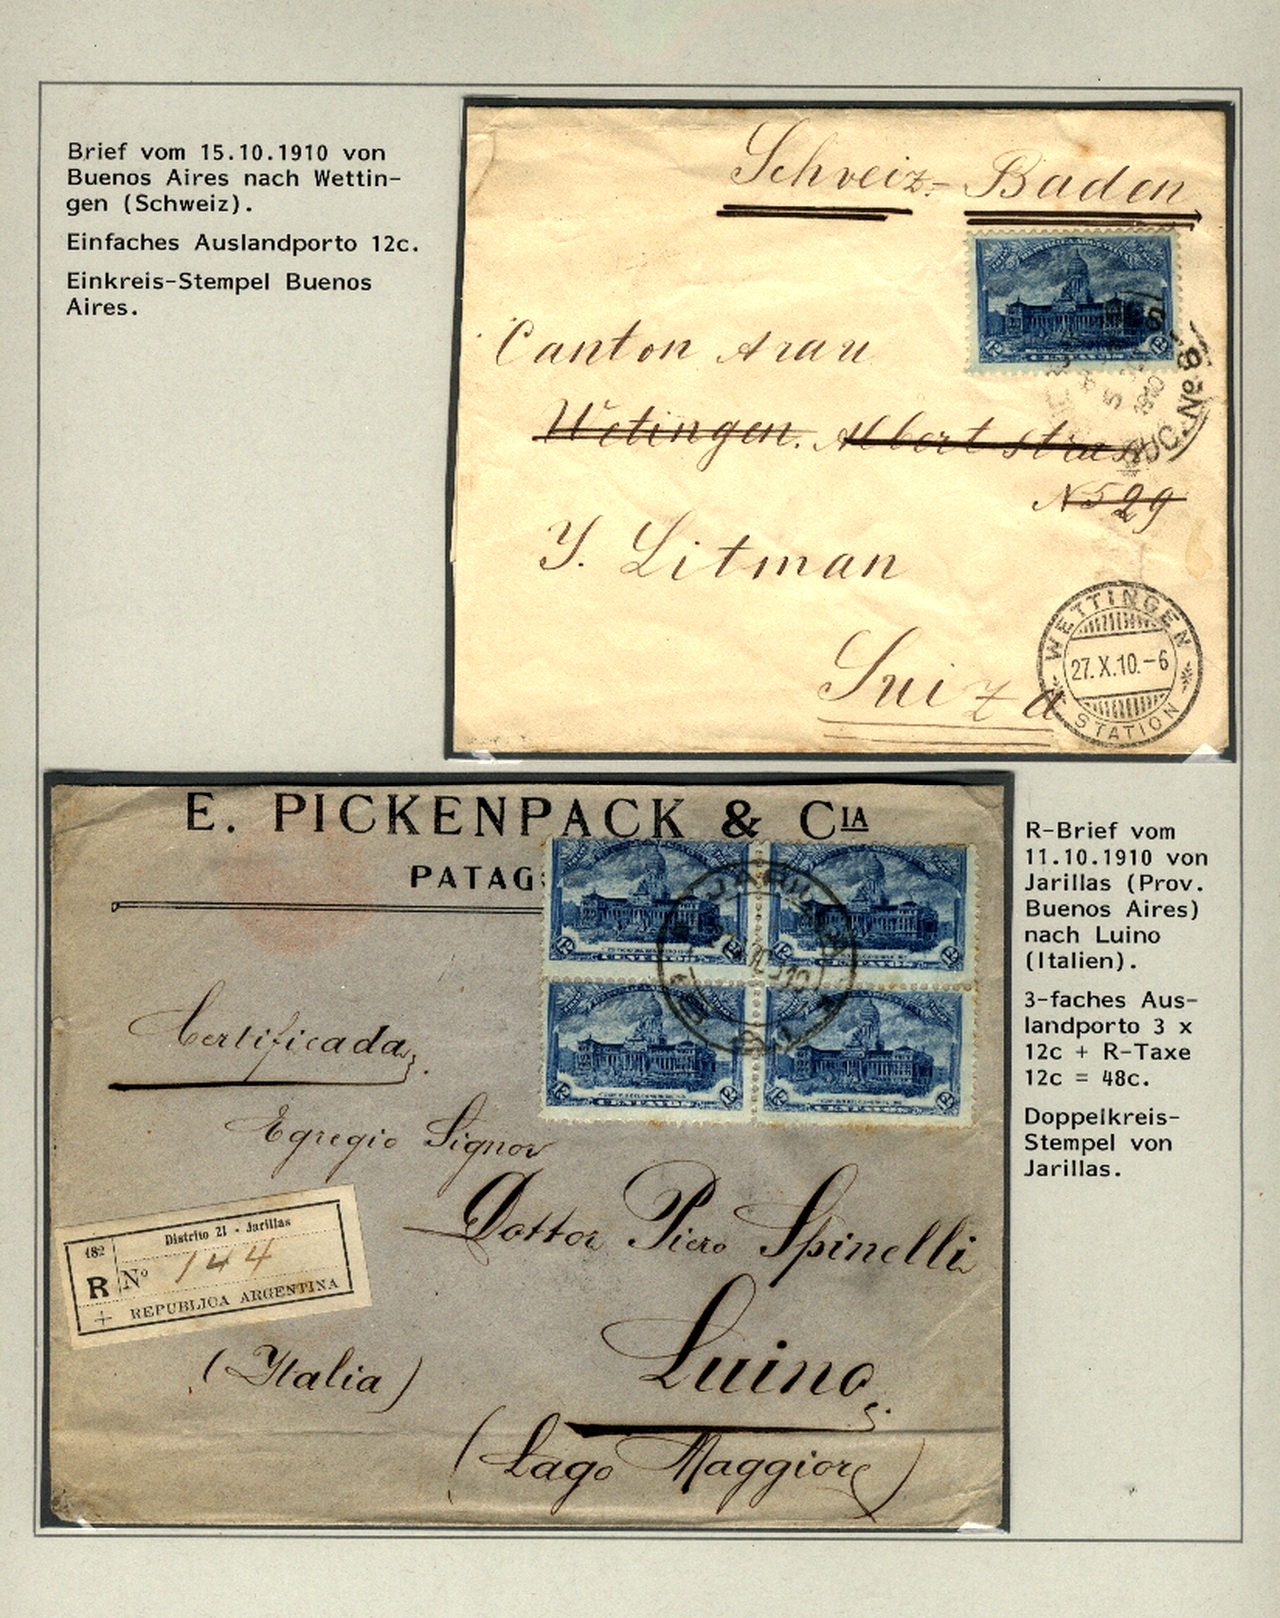 Brief vom 15.10.1910 von
Buenos Aires nach Wettin-
gen (Schweiz).
Einfaches Auslandporto 12c.
Einkreis-Stempel Buenos
Aires.
Schveiz- Baden
Canton Arau
Wetingen. Albert stras
N529
Y. Litman
Suiza
WETTINGEN
27.X.10.-6
STATION
1910
12 12
CENTAVOS
E. PICKENPACK & CIA
PATAG
Certificada
Egregio Signor
Dottor Piero Spinelli
Luino
(Italia)
(Lago Maggiore)
182
Distrito 21 - Jarillas
R Nº 144
REPUBLICA ARGENTINA
R-Brief vom
11.10.1910 von
Jarillas (Prov.
Buenos Aires)
nach Luino
(Italien).
3-faches Aus-
landporto 3 x
12c + R-Taxe
12c = 48c.
Doppelkreis-
Stempel von
Jarillas.